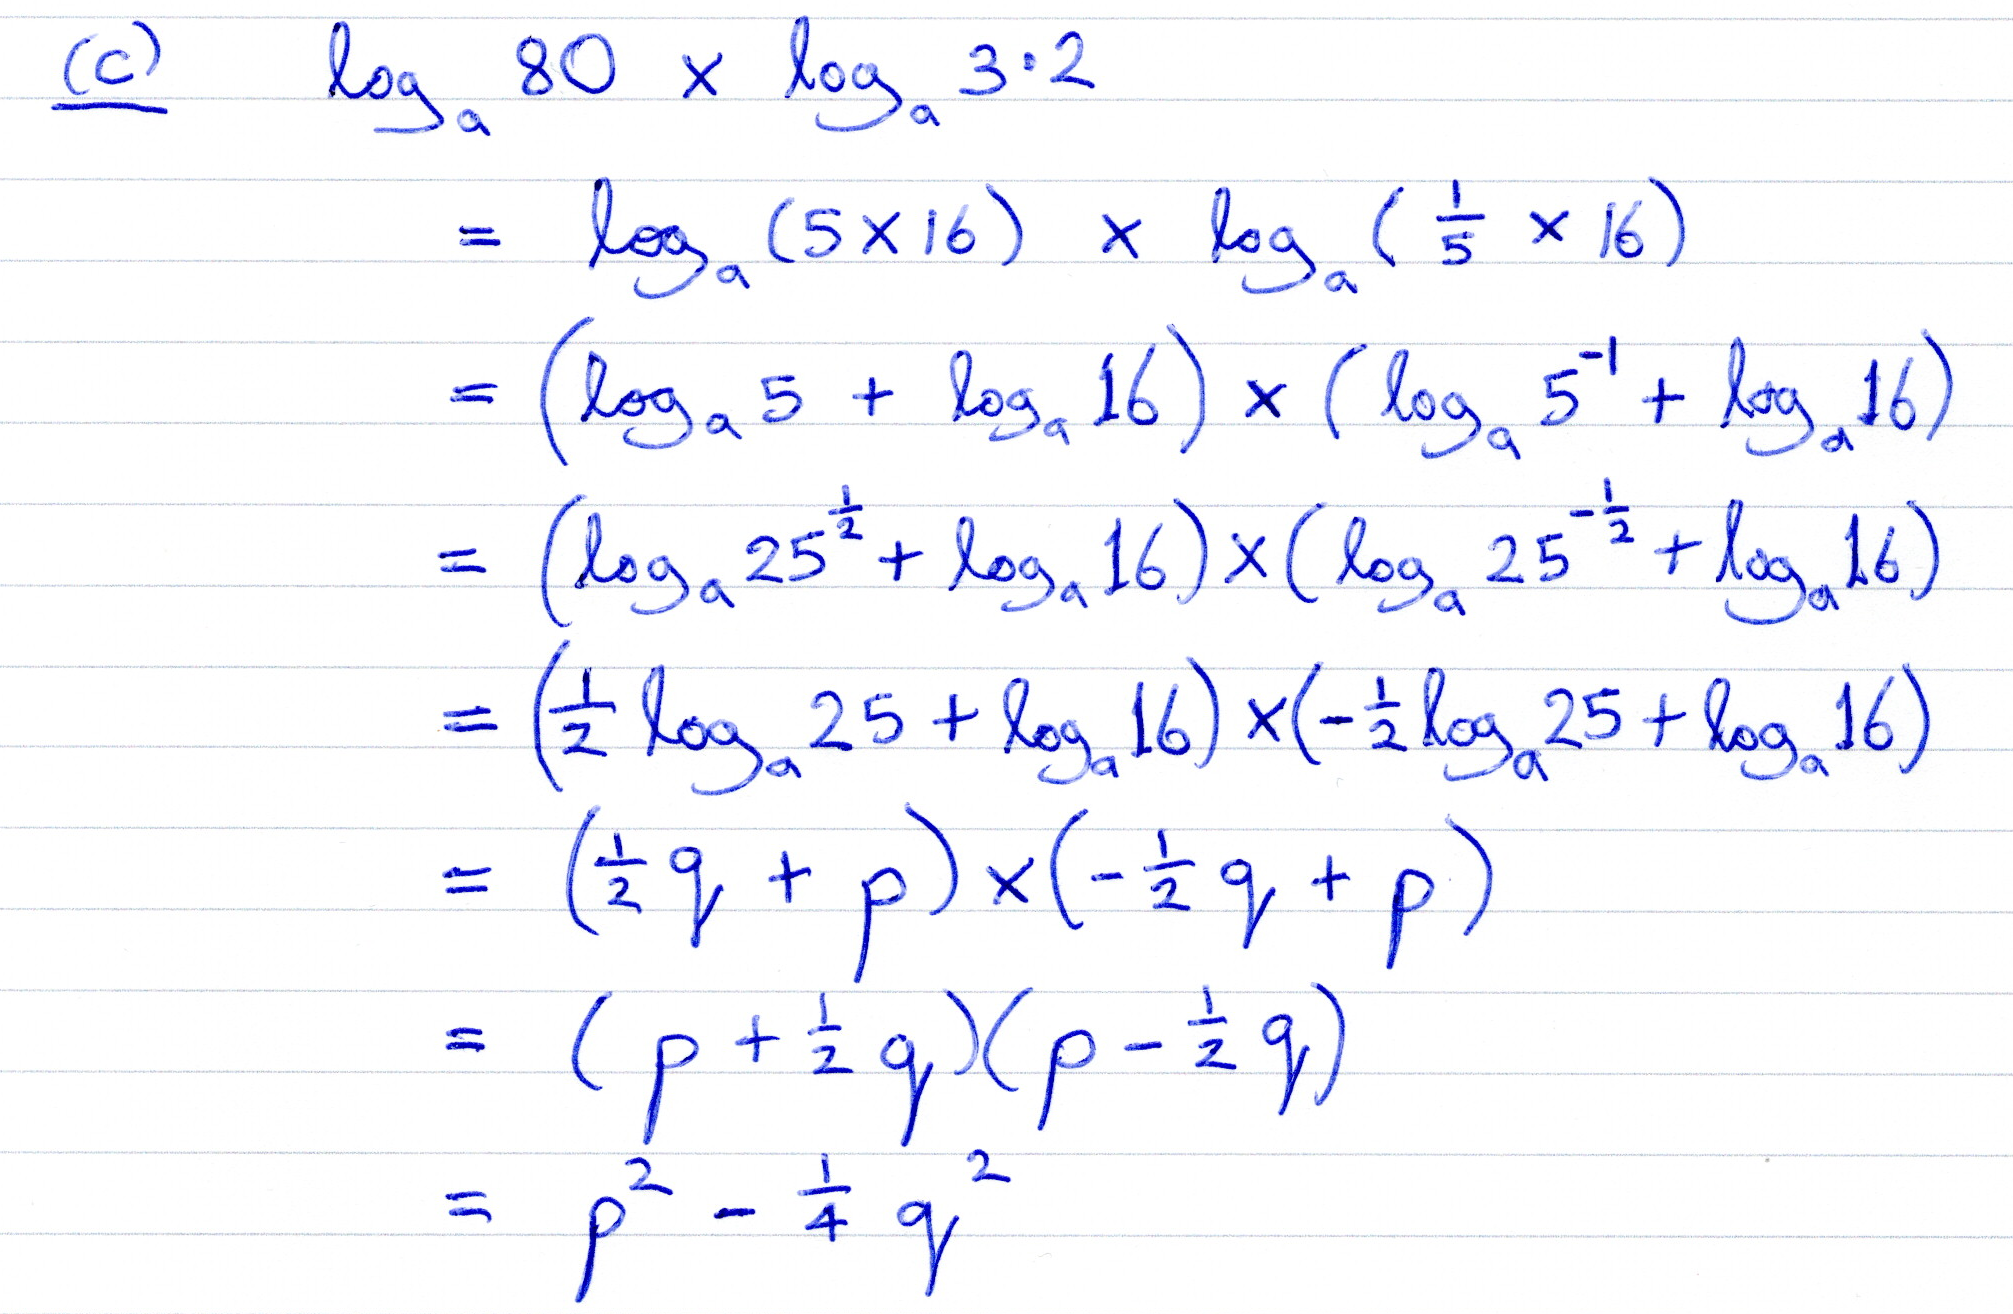 (c) logₐ 80 × logₐ 3·2
= logₐ (5×16) × logₐ (1/5 × 16)
= (logₐ 5 + logₐ 16) × (logₐ 5⁻¹ + logₐ 16)
= (logₐ 25^(1/2) + logₐ 16) × (logₐ 25^(-1/2) + logₐ 16)
= (1/2 logₐ 25 + logₐ 16) × (-1/2 logₐ 25 + logₐ 16)
= (1/2 q + p) × (-1/2 q + p)
= (p + 1/2 q)(p - 1/2 q)
= p² - 1/4 q²